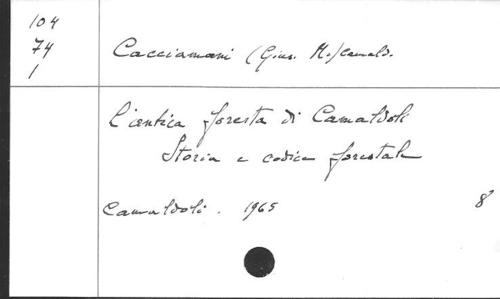 104
74
1
Cacciamani (Gius. M.) camald.
L'antica foresta di Camaldoli
Storia e codice forestale
Camaldoli. 1965
8°